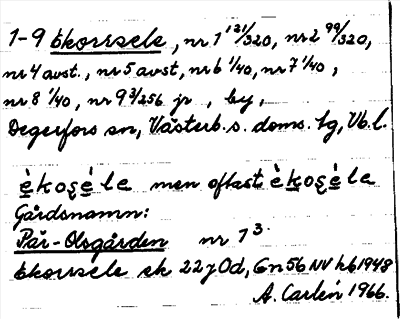 1-9 Ekorrsele, nr 1 121/320, nr 2 99/320,
nr 4 avst., nr 5 avst, nr 6 1/40, nr 7 1/40,
nr 8 1/40, nr 9 3/256 jr, by,
Degerfors sn, Västerb. s. doms. tg, Vb. l.
è̱koʂè̱le men oftast è̱ḵoʂè̱le
Gårdsnamn:
Pär-Olsgården nr 1 3.
Ekorrsele ek 22 J 0d, Gn 56 NV hb 1948
A. Carlén 1966.